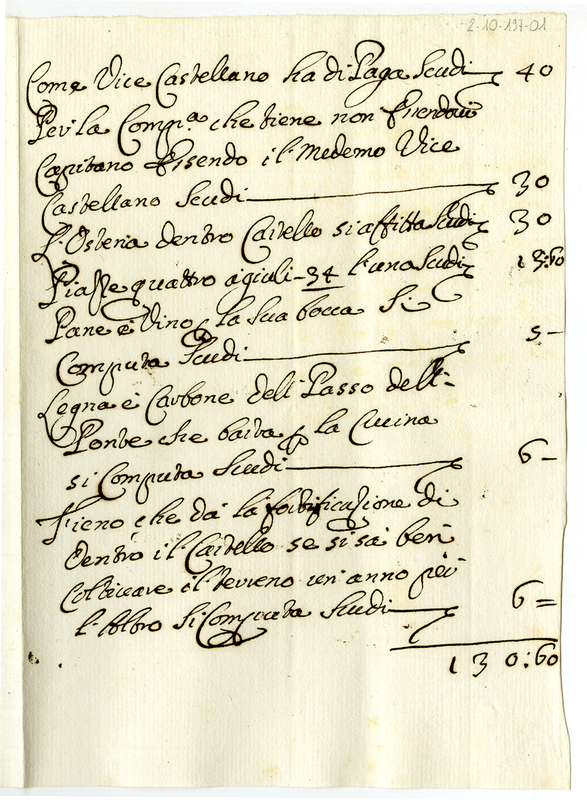 2-10-197-01
Come Vice Castellano ha di Paga Scudi 40
Per la Comp.a che tiene non essendoui
Capitano essendo il Medemo Vice
Castellano Scudi 30
L'Osteria dentro Castello si affitta Scudi 30
Piazze quattro a giuli 34 l'una Scudi 13:60
Pane e Vino p la sua bocca Si
Computa Scudi 5 -
Legna e Carbone dell Passo dell
Ponte che basta p la Cucina
si Computa Scudi 6 -
Fieno che da la fortificazione di
dentro il Castello se si sa ben
Coltiuare il terreno un'anno per
l'Altro Si Computa Scudi 6 =
130:60